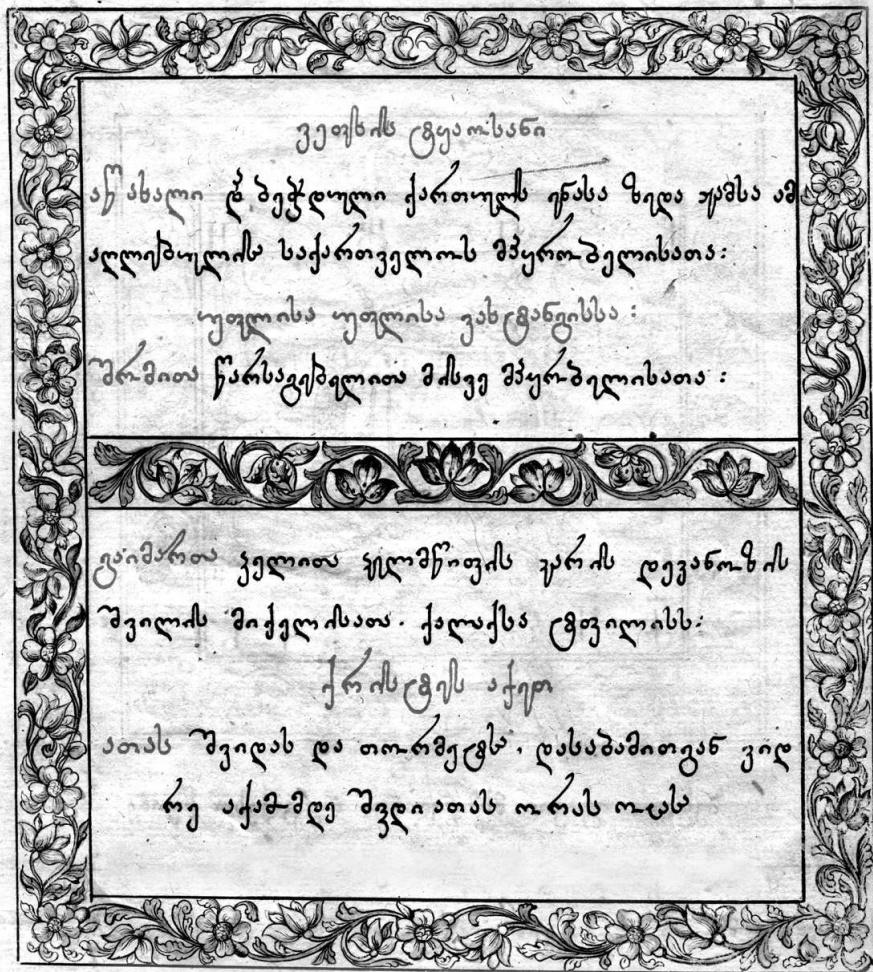 ვეფხის ტყაოსანი
აწ ახალი დ ბეჭდული ქართულს ენასა ზედა ჟამსა ამ
აღლებულის საქართველოს მპყრობელისათა:
უფლისა უფლისა ვახტანგისსა:
შრომითა წარსაგებელითა მისვე მპყრობელისათა:
გაიმართა ჴელითა ჴელმწიფის კარის დეკანოზის
შვილის მიქელისათა. ქალაქსა ტფილისს:
ქრისტეს აქეთ
ათას შვიდას და თორმეტს, დასაბამითგან ვიდ
რე აქამომდე შვდი ათას ორას ოცს